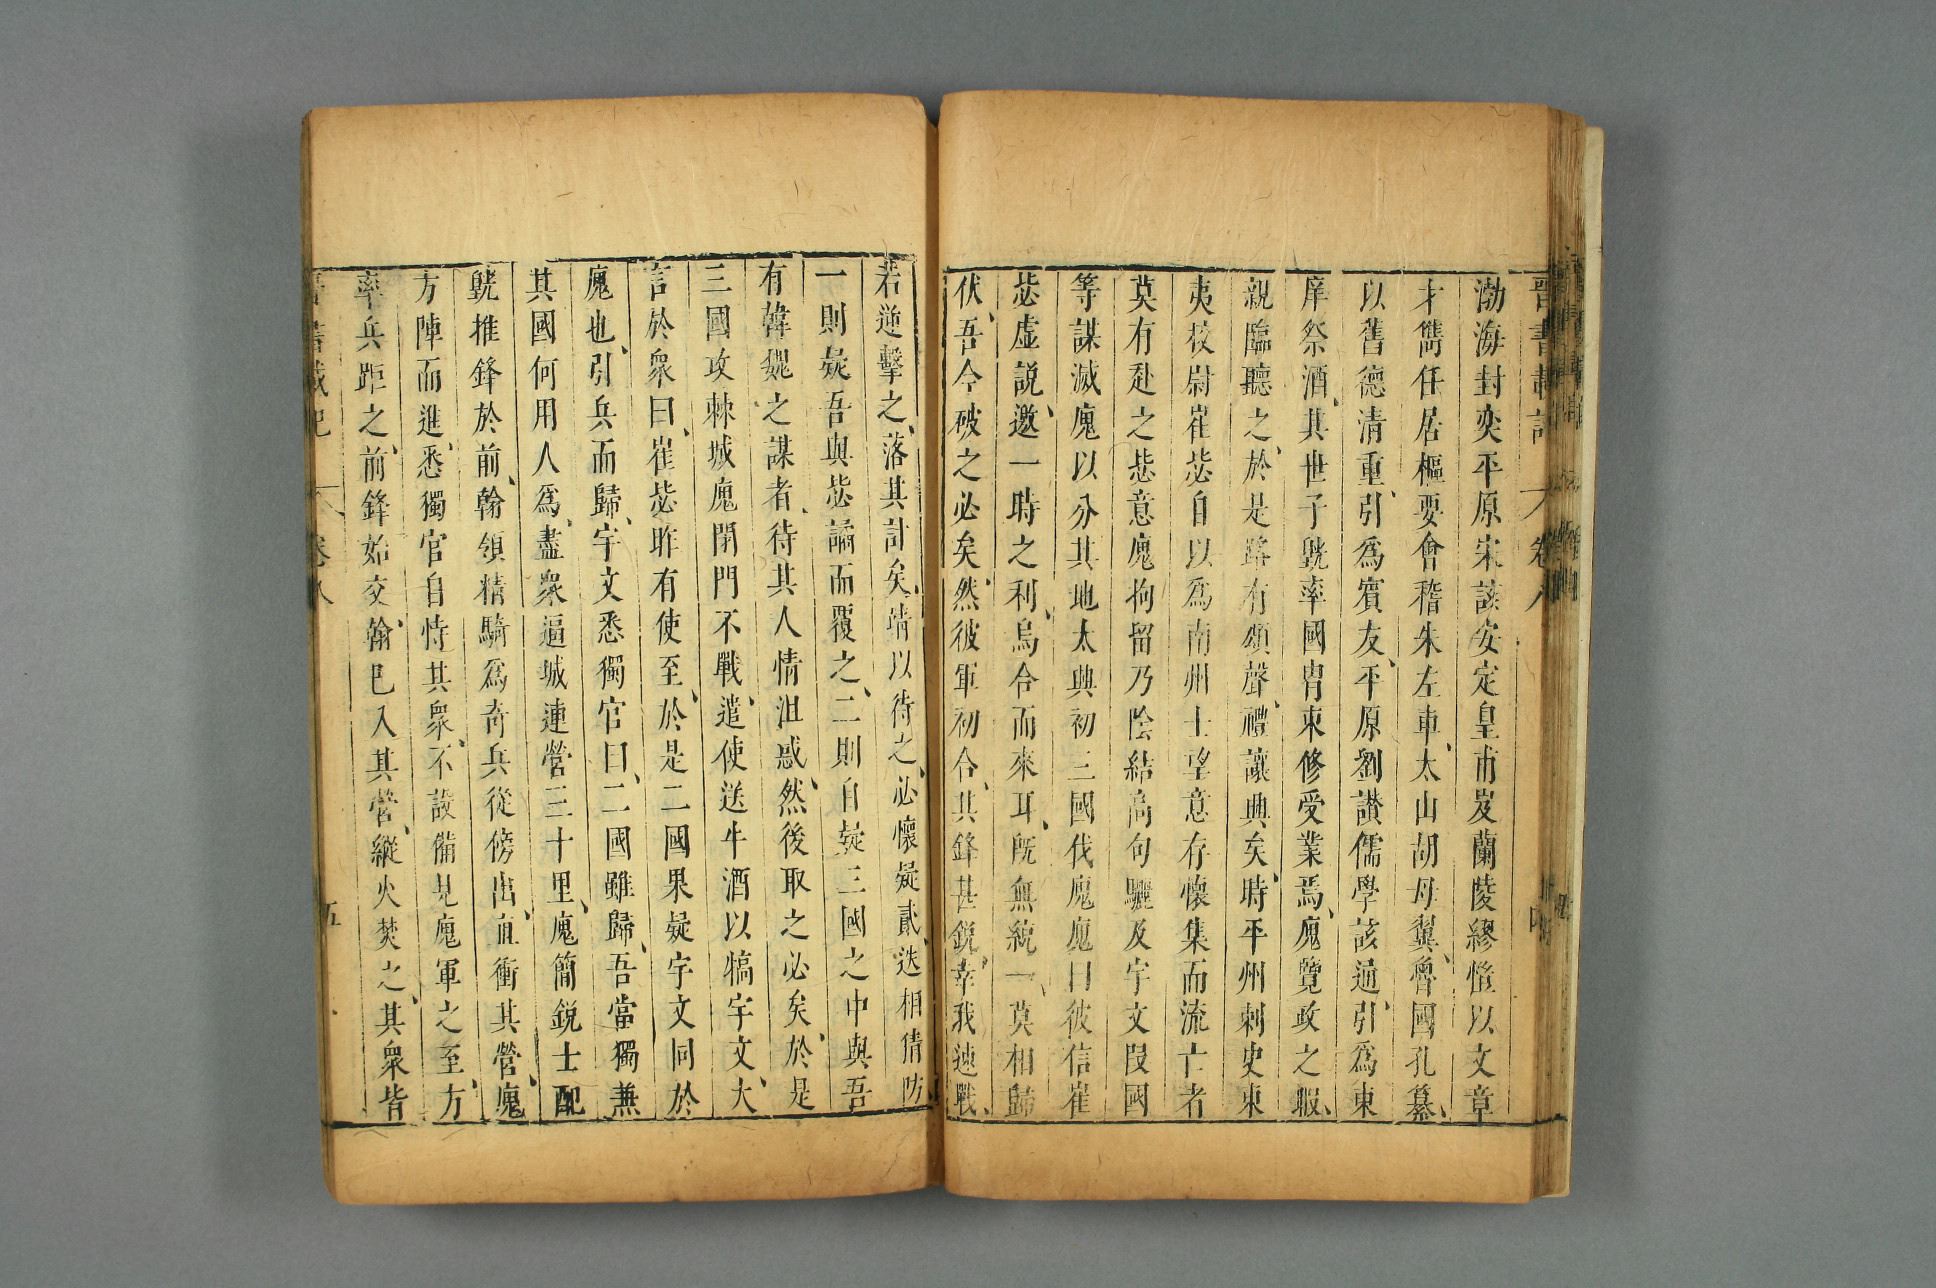 晉書載記 卷八
渤海封奕平原宋該安定皇甫岌蘭陵繆愷以文章
才儁任居樞要會稽朱左車太山胡母翼魯國孔纂
以舊德清重引爲賓友平原劉讚儒學該通引爲東
庠祭酒其世子皝率國胄束修受業焉廆覽政之暇
親臨聽之於是路有頌聲禮讓興矣時平州刺史東
夷校尉崔毖自以爲南州士望意存懷集而流亡者
莫有赴之毖意廆拘留乃陰結高句驪及宇文段國
等謀滅廆以分其地太興初三國伐廆廆曰彼信崔
毖虛說邀一時之利烏合而來耳旣無統一莫相歸
伏吾今破之必矣然彼軍初合其鋒甚銳幸我速戰
若逆擊之落其計矣靖以待之必懷疑貳迭相猜防
一則疑吾與毖譎而覆之二則自疑三國之中與吾
有韓魏之謀者待其人情沮惑然後取之必矣於是
三國攻棘城廆閉門不戰遣使送牛酒以犒宇文大
言於衆曰崔毖昨有使至於是二國果疑宇文同於
廆也引兵而歸宇文悉獨官曰二國雖歸吾當獨兼
其國何用人爲盡衆逼城連營三十里廆簡銳士配
皝推鋒於前翰領精騎爲奇兵從傍出直衝其營廆
方陣而進悉獨官自恃其衆不設備見廆軍之至方
率兵距之前鋒始交翰已入其營縱火焚之其衆皆
晉書載記 卷八 五